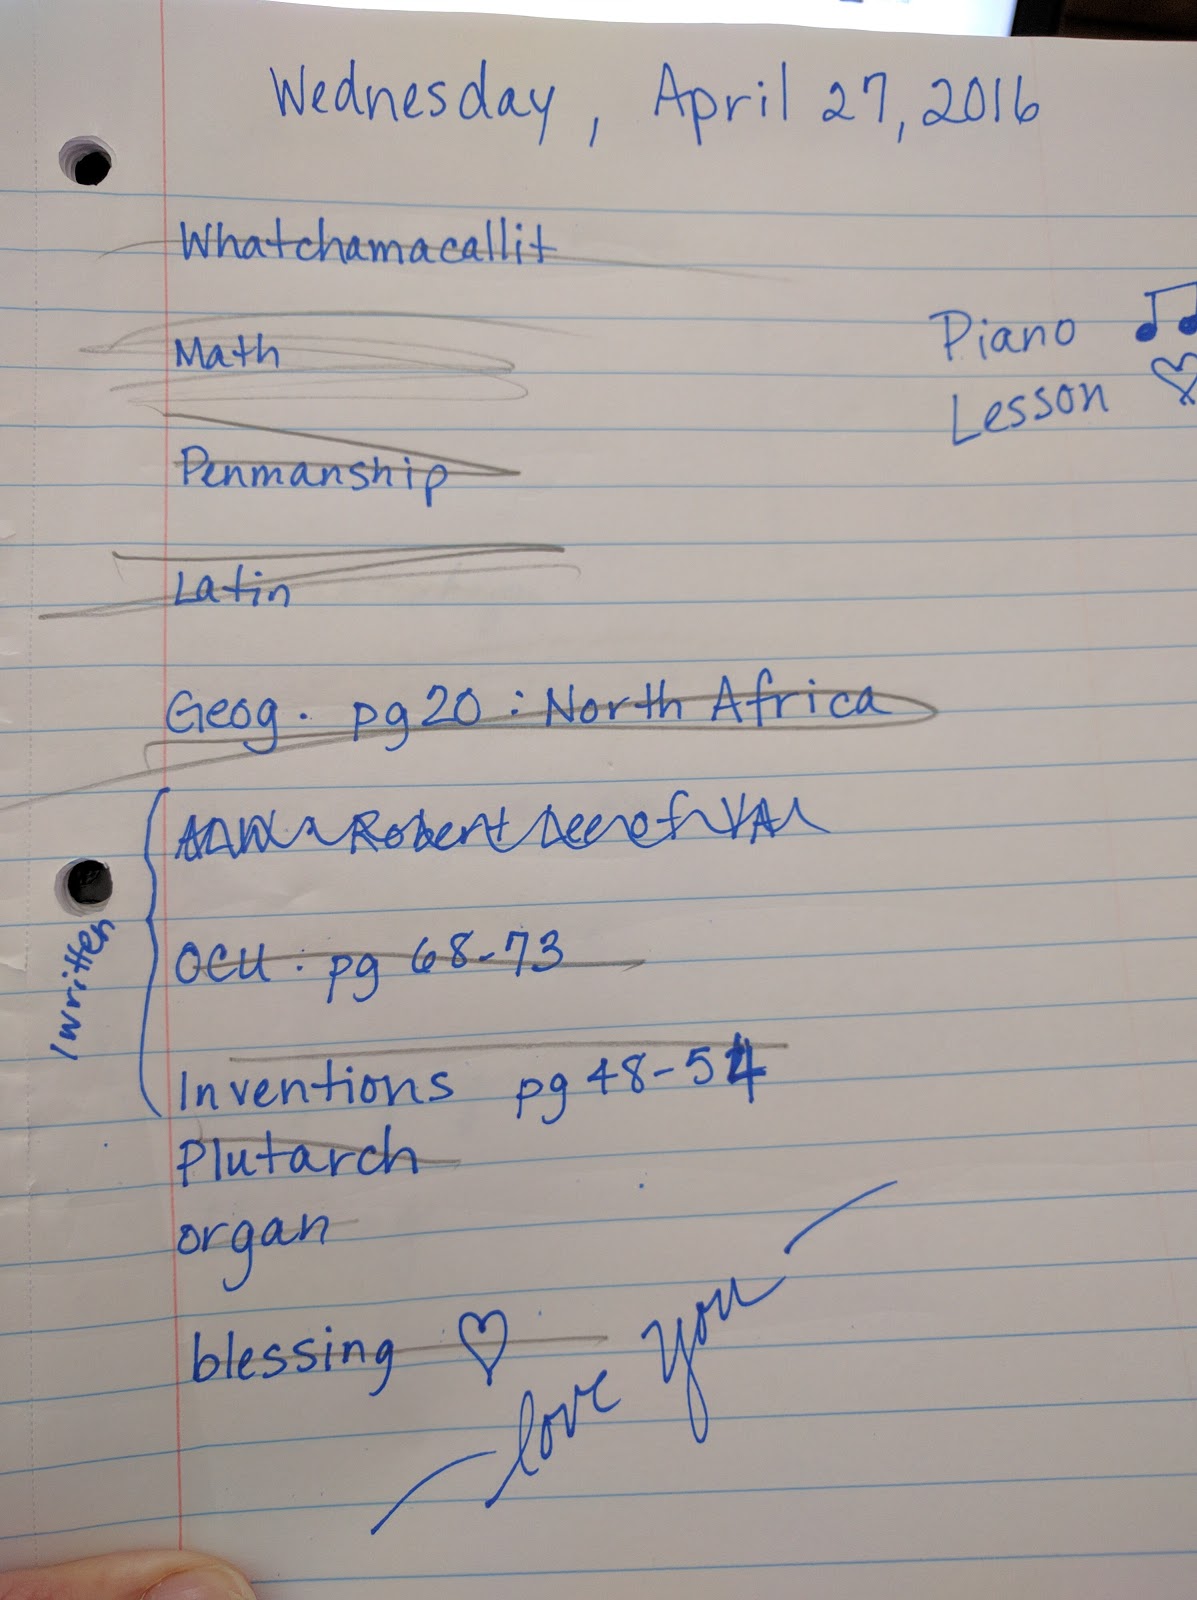 Wednesday, April 27, 2016
Whatchamacallit
Math
Piano
Lesson
Penmanship
Latin
Geog. pg 20 : North Africa
Robert Lee of VA
OCU : pg 68-73
1 written
Inventions pg 48-54
Plutarch
organ
blessing ♡
love you